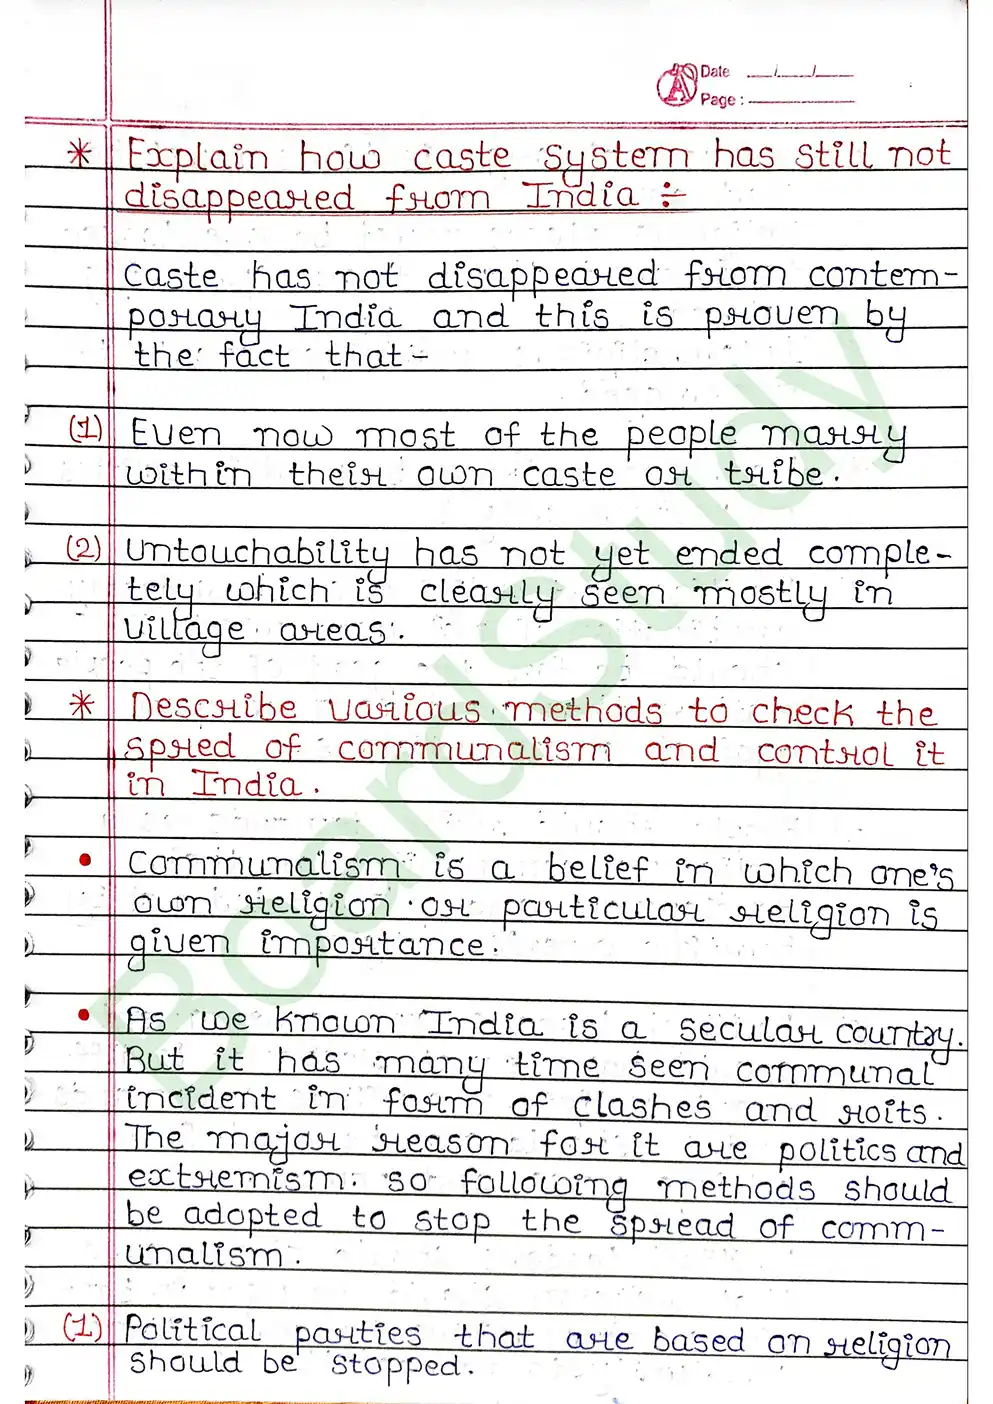 Date __/__/__
Page : ________
* Explain how caste system has still not
disappeared from India :-
Caste has not disappeared from contem-
porary India and this is proven by
the fact that -
(1) Even now most of the people marry
within their own caste or tribe.
(2) Untouchability has not yet ended comple-
tely which is clearly seen mostly in
village areas.
* Describe various methods to check the
spred of communalism and control it
in India.
• Communalism is a belief in which one's
own religion or particular religion is
given importance.
• As we known India is a secular country.
But it has many time seen communal
incident in form of clashes and roits.
The major reason for it are politics and
extremism. so following methods should
be adopted to stop the spread of comm-
unalism.
(1) Political parties that are based on religion
should be stopped.
BoardStudy